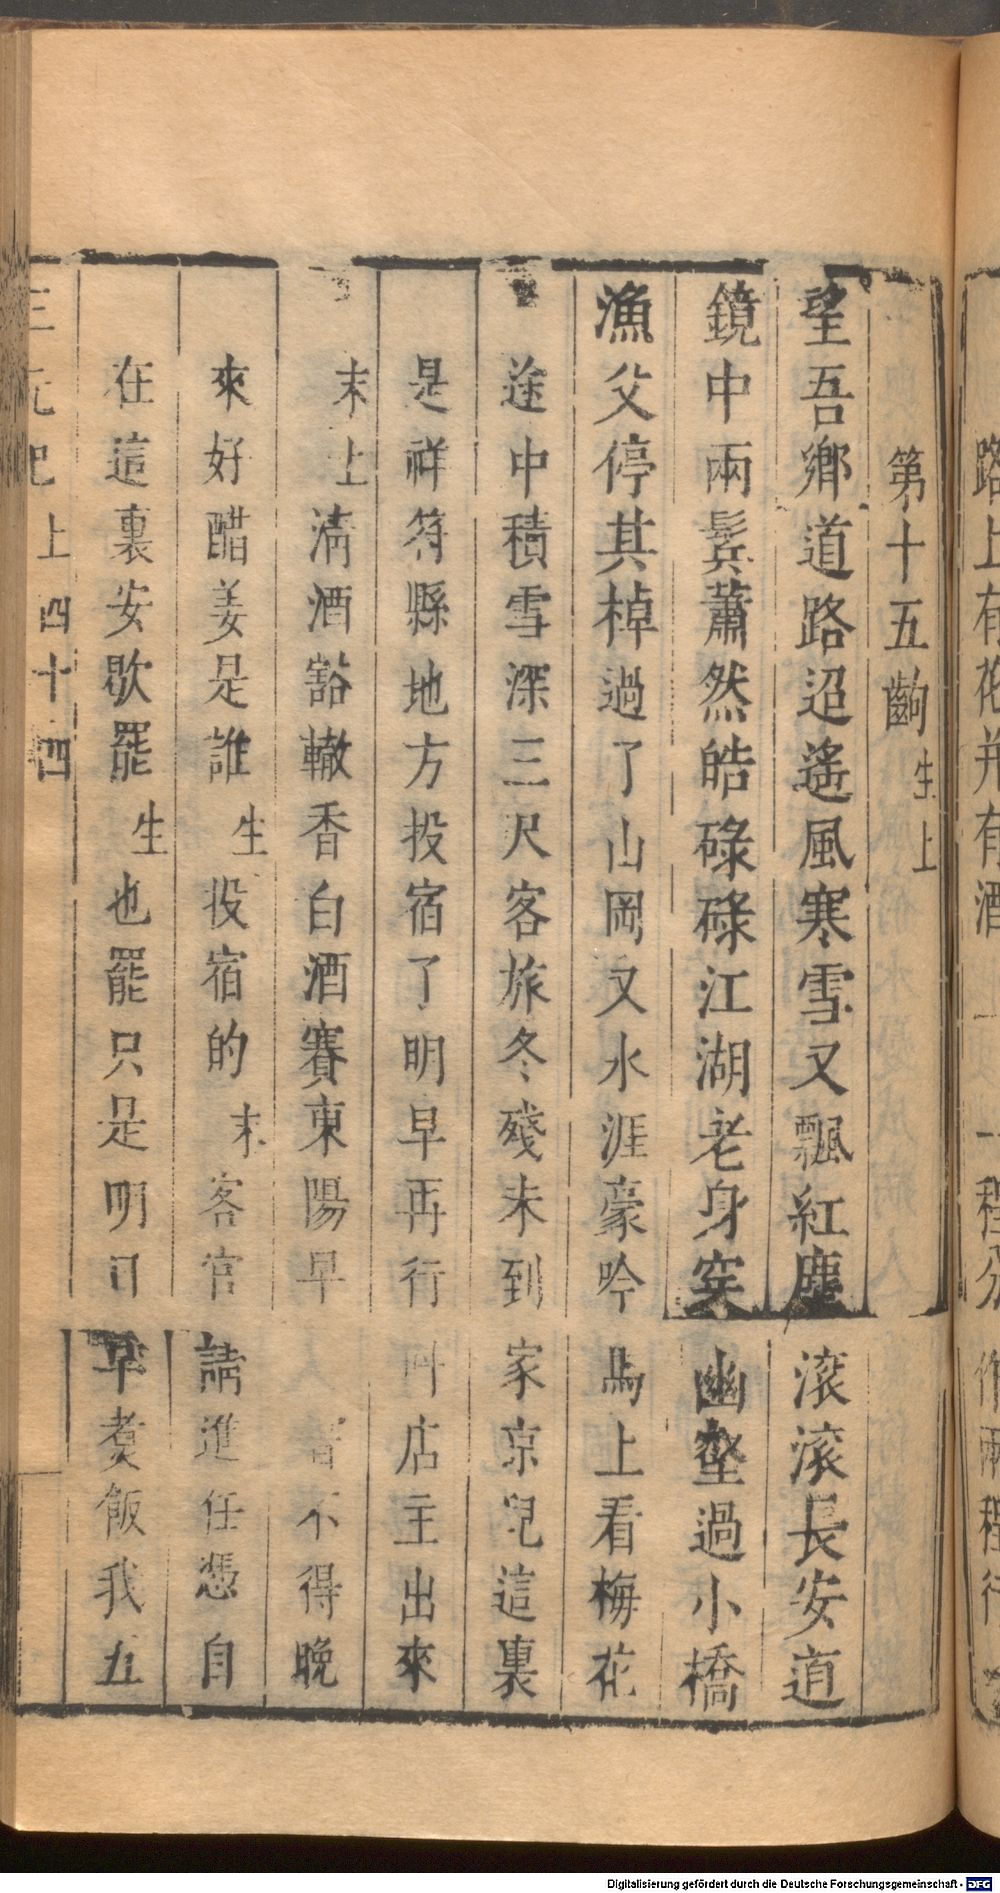 路上有花并有酒 一程分作兩程行
第十五齣 生上
望吾鄉道路迢遙風寒雪又飄紅塵滾滾長安道
鏡中兩鬢蕭然皓碌碌江湖老身穿幽壑過小橋
漁父停其棹過了山岡又水涯豪吟馬上看梅花
途中積雪深三尺客旅冬殘未到家京兒這裏
是祥符縣地方投宿了明早再行 店主出來
末上清酒豁轍香白酒賽東陽早 不得晚
來好醋姜是誰生投宿的末客官請進任憑自
在這裏安歇罷生也罷只是明日早煑飯我五
三元記上四十四
Digitalisierung gefördert durch die Deutsche Forschungsgemeinschaft - DFG